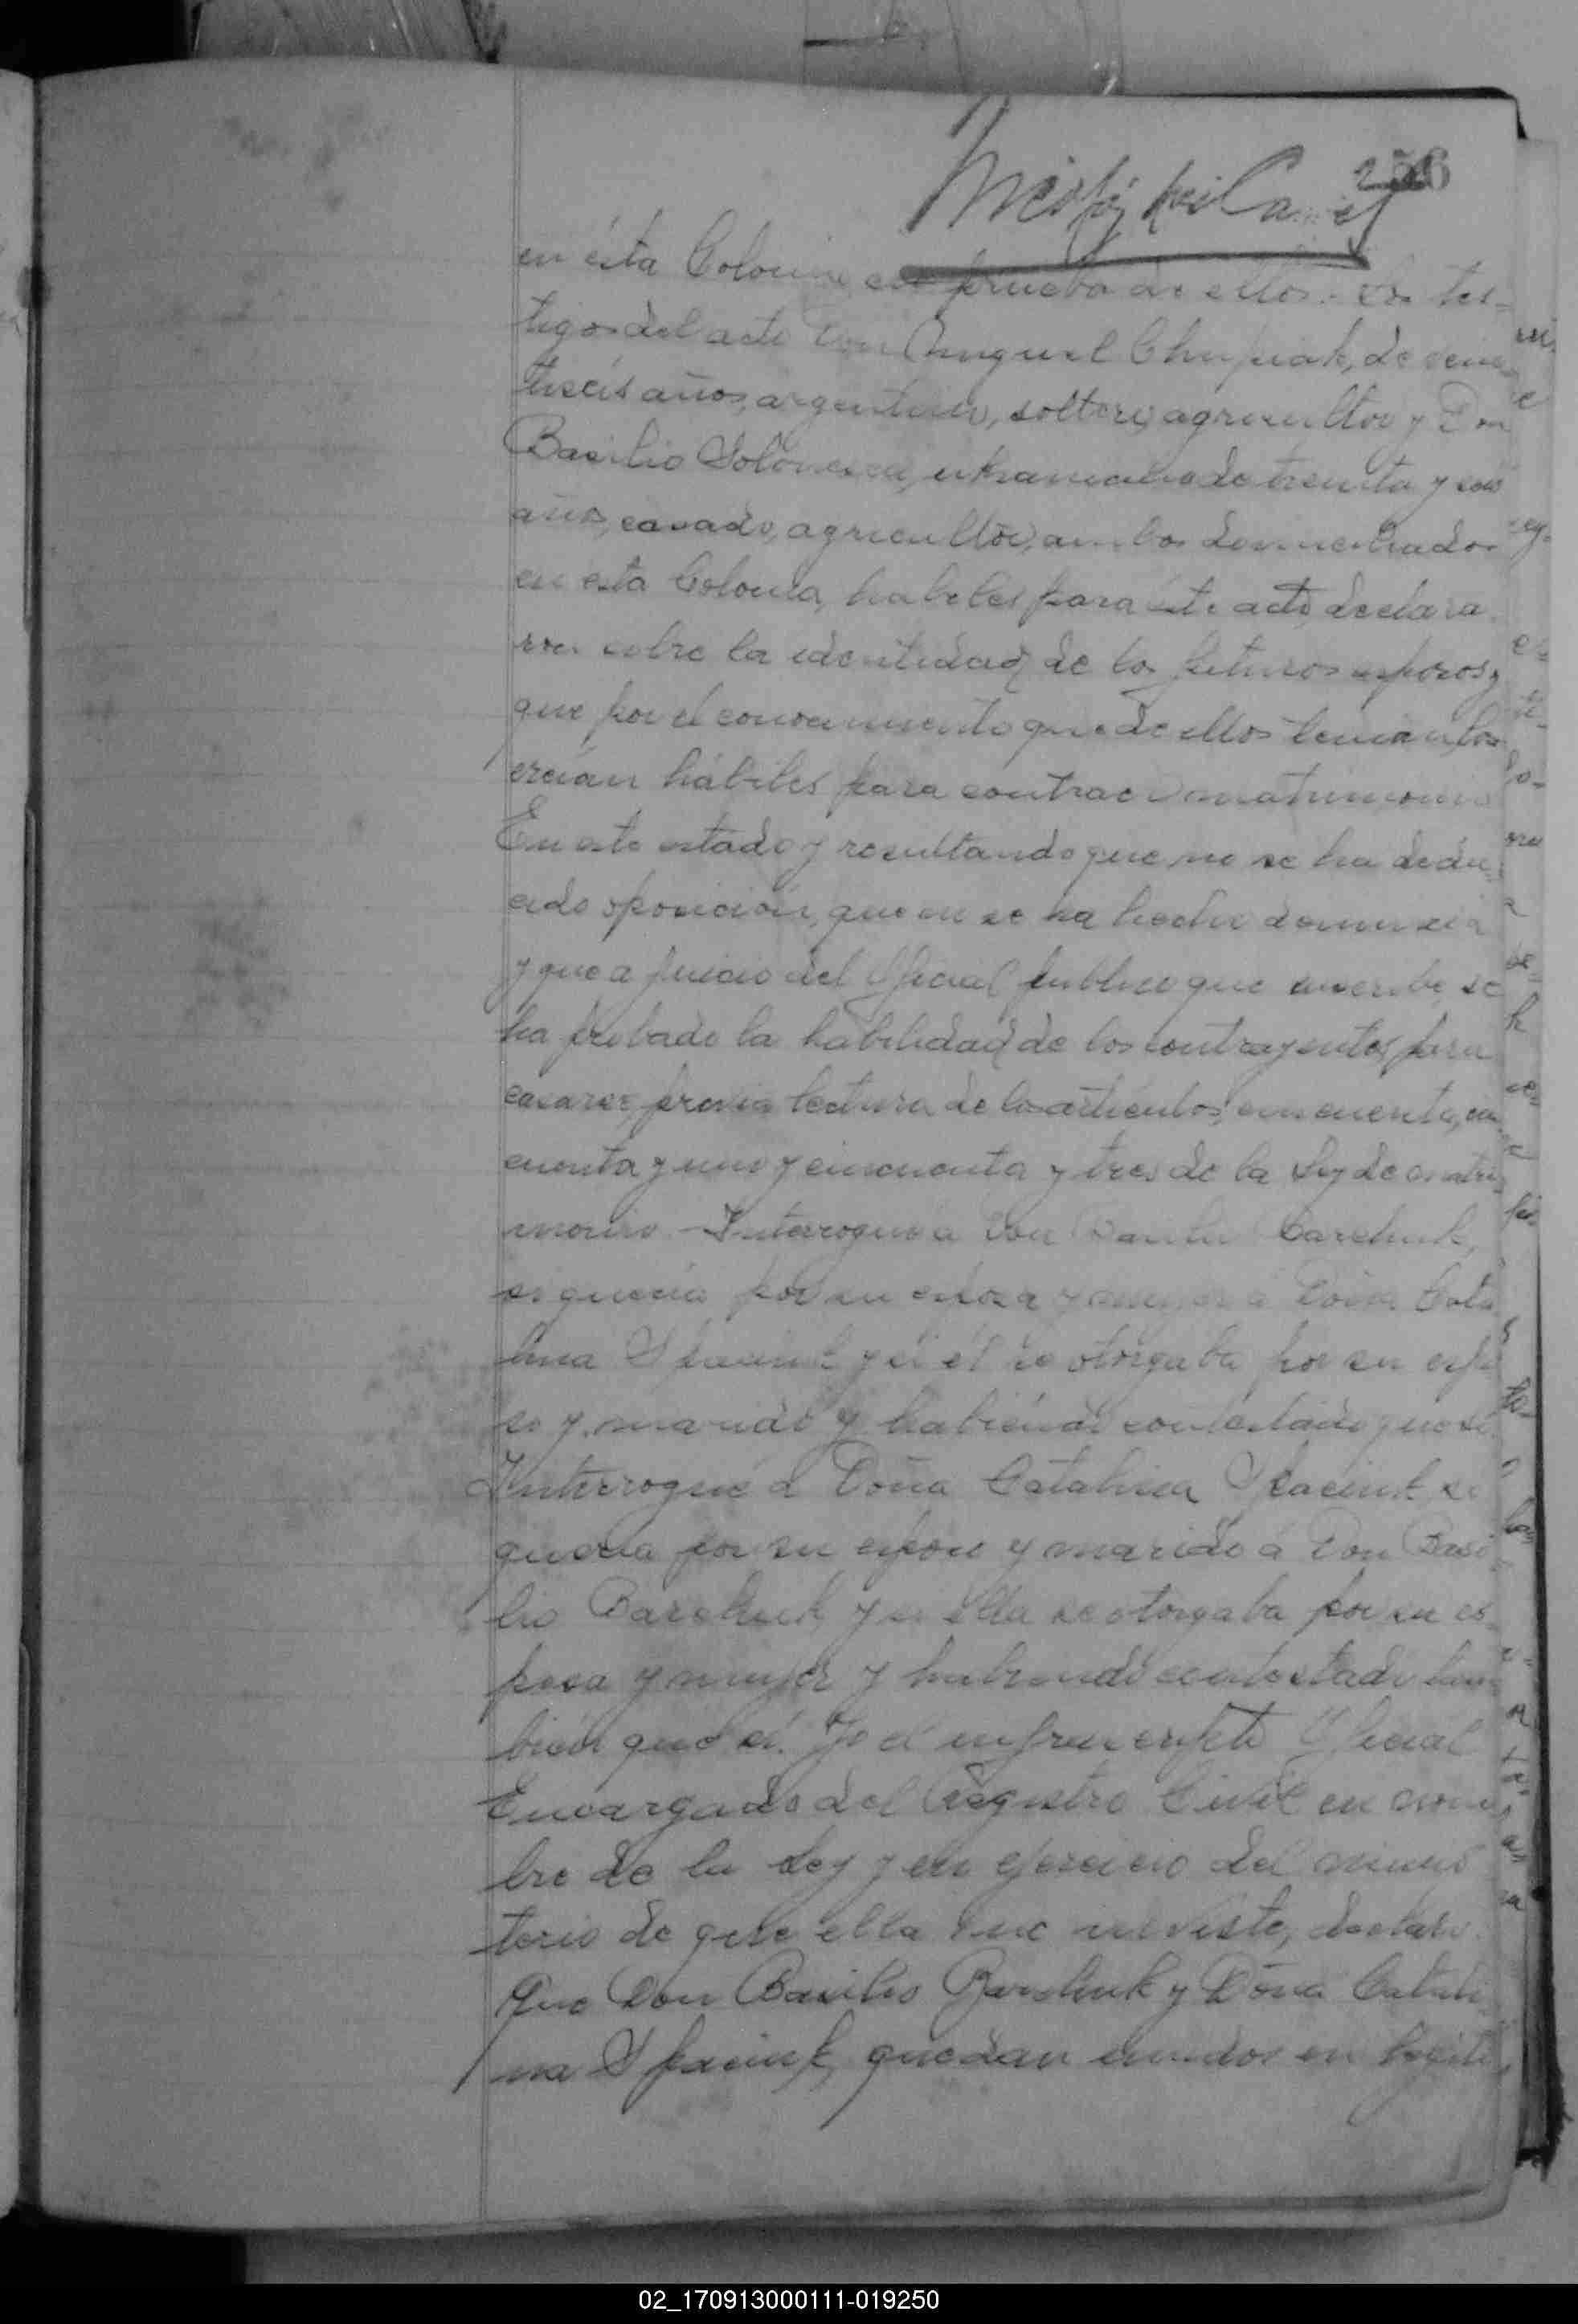 256
en ésta Colonia en prueba de ellos. Los tes-
tigos del acto Don Miguel Chupiak, de vein
tiseis años, argentino, soltero, agricultor y Don
Basilio ukraniano de treinta y seis
años, casado, agricultor, ambos domiciliados
en esta Colonia, habiles para éste acto, declara
ron sobre la identidad de los futuros esposos y
que por el conocimiento que de ellos tenian, los
creian hábiles para contraer matrimonio
En este estado y resultando que no se ha dedu
cido oposición, que no se ha hecho denuncia
y que a juicio del Oficial publico que suscribe, se
ha probado la habilidad de los contrayentes para
casarse, previa lectura de los articulos, cincuenta, cin
cuenta y uno y cincuenta y tres de la Ley de matri
monio - Interrogué a Don Basilio Barchuk,
si queria por su esposa y mujer a Doña Cata
lina y si él se otorgaba por su espo
so y marido y habiendo contestado que si
Interrogué á Doña Catalina si
queria por su esposo y marido á Don Basi
lio Barchuk y si ella se otorgaba por su es
posa y mujer y habiendo contestado tam
bién que sí. Yo el infrascripto Oficial
Encargado del Registro Civil en nom
bre de la Ley y en ejercicio del minis
terio de que ella me inviste, declaro
Que Don Basilio Barchuk y Doña Catali
na quedan unidos en legiti
02_170913000111-019250